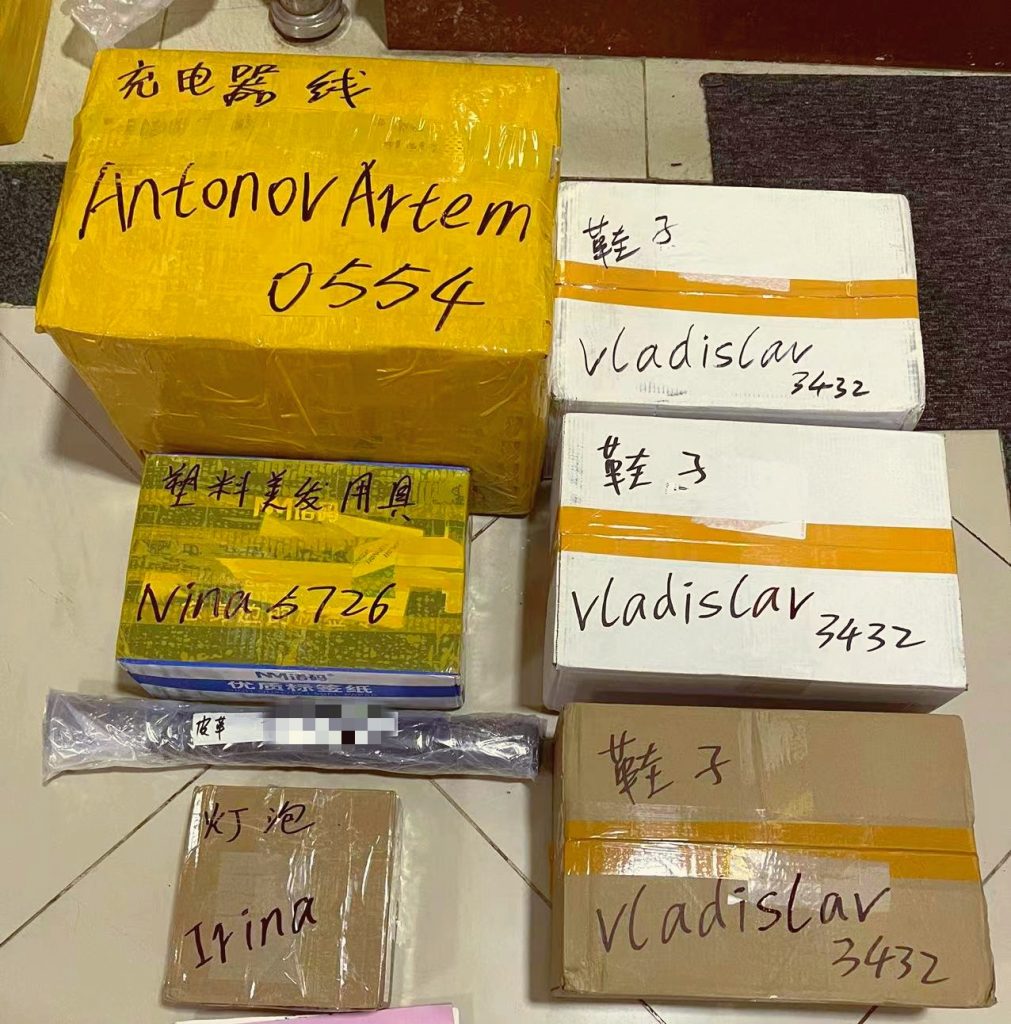 充电器 线
Antonov Artem
0554
鞋子
vladislav
3432
鞋子
vladislav
3432
塑料美发用具
Nina 5726
优质标签纸
皮革
灯泡
Irina
鞋子
vladislav
3432